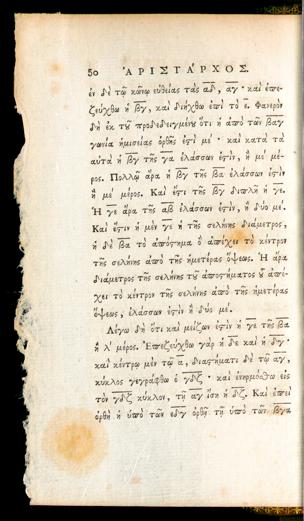 50 ἈΡΙΣΤΑΡΧΟΣ.
ἐν δὲ τῷ κώνῳ εὐθείας τὰς α̅δ̅, α̅γ̅· καὶ ἐπε-
ζεύχθω ἡ β̅γ̅, καὶ διήχθω ἐπὶ τὸ ε̅. Φανερὸν
δὴ ἐκ τῦ προδεδειγμένυ ὅτι ἡ ἀπὸ τῶν β̅α̅γ̅
γωνία ἡμισείας ὀρθῆς ἐςὶ μέ· καὶ κατὰ τὰ
αὐτὰ ἡ β̅γ̅ τῆς γ̅α̅ ἐλάσσων ἐςὶν, ἢ μέ μέ-
ρος. Πολλῷ ἄρα ἡ β̅γ̅ τῆς β̅α̅ ἐλάσσων ἐςὶν
ἢ μέ μέρος. Καὶ ἔςι τῆς β̅γ̅ διπλῆ ἡ γ̅ε̅.
Ἡ γ̅ε̅ ἄρα τῆς α̅β̅ ἐλάσσων ἐςὶν, ἢ δύο μέ.
Καὶ ἔςιν ἡ μὲν γ̅ε̅ ἡ τῆς σελήνης διάμετρος,
ἡ δὲ β̅α̅ τὸ ἀπόςημα ὃ ἀπέχει τὸ κέντρον
τῆς σελήνης ἀπὸ τῆς ἡμετέρας ὄψεως. Ἡ ἄρα
διάμετρος τῆς σελήνης τῦ ἀποςήματος ὗ ἀπέ-
χει τὸ κέντρον τῆς σελήνης ἀπὸ τῆς ἡμετέρας
ὄψεως, ἐλάσσων ἐςὶν ἢ δύο μέ.
Λέγω δὴ ὅτι καὶ μείζων ἐςὶν ἡ γ̅ε̅ τῆς β̅α̅
ἢ λ' μέρος. Ἐπεζεύχθω γὰρ ἡ δ̅ε̅ καὶ ἡ δ̅γ̅·
καὶ κέντρῳ μὲν τῷ α̅, διαςήματι δὲ τῷ α̅γ̅,
κύκλος γεγράφθω ὁ γ̅δ̅ζ̅· καὶ ἐνηρμόσθω εἰς
τὸν γ̅δ̅ζ̅ κύκλον, τῇ α̅γ̅ ἴση ἡ δ̅ζ̅. Καὶ ἐπεὶ
ὀρθὴ ἡ ὑπὸ τῶν ε̅δ̅γ̅ ὀρθῇ τῇ ὑπὸ τῶν β̅γ̅α̅